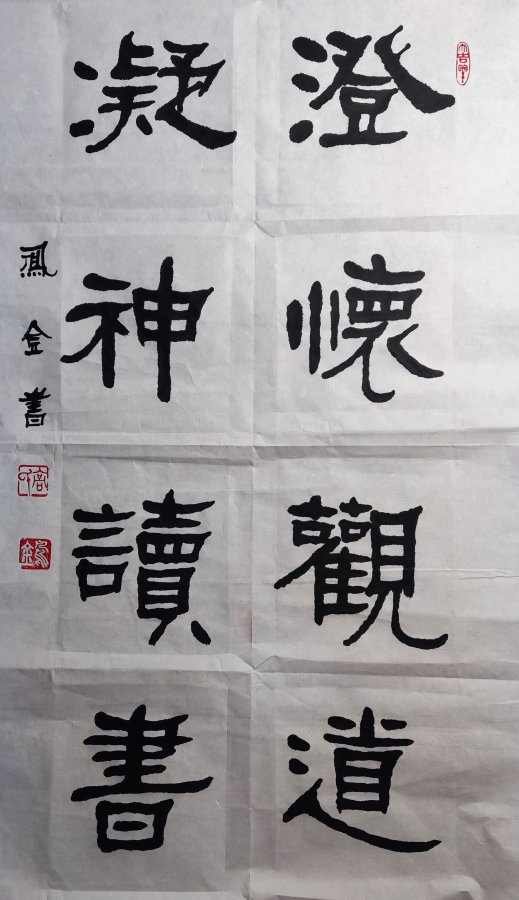 澄懷觀道
凝神讀書
鳳金書